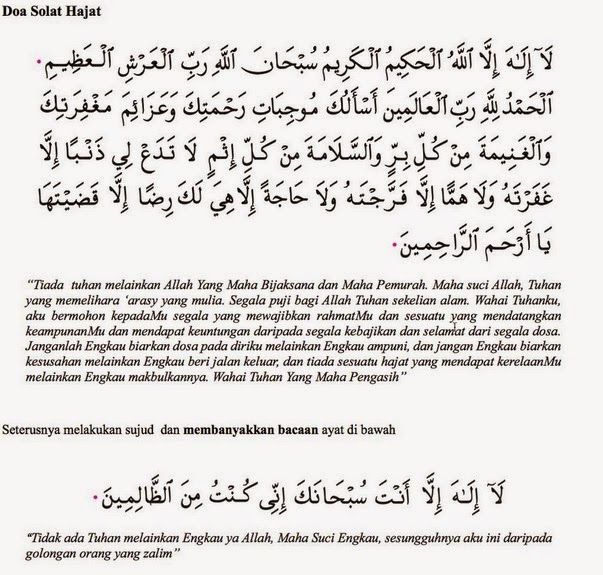 Doa Solat Hajat
لَآ إِلَـٰهَ إِلَّا ٱللَّهُ ٱلْحَكِيمُ ٱلْكَرِيمُ سُبْحَانَ ٱللَّهِ رَبِّ ٱلْعَرْشِ ٱلْعَظِيمِ.
ٱلْحَمْدُ لِلَّهِ رَبِّ ٱلْعَالَمِينَ أَسْأَلُكَ مُوجِبَاتِ رَحْمَتِكَ وَعَزَائِمَ مَغْفِرَتِكَ
وَٱلْغَنِيمَةَ مِنْ كُلِّ بِرٍّ وَٱلسَّلَامَةَ مِنْ كُلِّ إِثْمٍ لَا تَدَعْ لِي ذَنْبًا إِلَّا
غَفَرْتَهُ وَلَا هَمًّا إِلَّا فَرَّجْتَهُ وَلَا حَاجَةً إِلَّا هِيَ لَكَ رِضًا إِلَّا قَضَيْتَهَا
يَا أَرْحَمَ ٱلرَّاحِمِينَ.
“Tiada tuhan melainkan Allah Yang Maha Bijaksana dan Maha Pemurah. Maha suci Allah, Tuhan
yang memelihara ‘arasy yang mulia. Segala puji bagi Allah Tuhan sekelian alam. Wahai Tuhanku,
aku bermohon kepadaMu segala yang mewajibkan rahmatMu dan sesuatu yang mendatangkan
keampunanMu dan mendapat keuntungan daripada segala kebajikan dan selamat dari segala dosa.
Janganlah Engkau biarkan dosa pada diriku melainkan Engkau ampuni, dan jangan Engkau biarkan
kesusahan melainkan Engkau beri jalan keluar, dan tiada sesuatu hajat yang mendapat kerelaanMu
melainkan Engkau makbulkannya. Wahai Tuhan Yang Maha Pengasih”
Seterusnya melakukan sujud dan membanyakkan bacaan ayat di bawah
لَآ إِلَـٰهَ إِلَّآ أَنْتَ سُبْحَانَكَ إِنِّى كُنْتُ مِنَ ٱلظَّالِمِينَ.
“Tidak ada Tuhan melainkan Engkau ya Allah, Maha Suci Engkau, sesungguhnya aku ini daripada
golongan orang yang zalim”